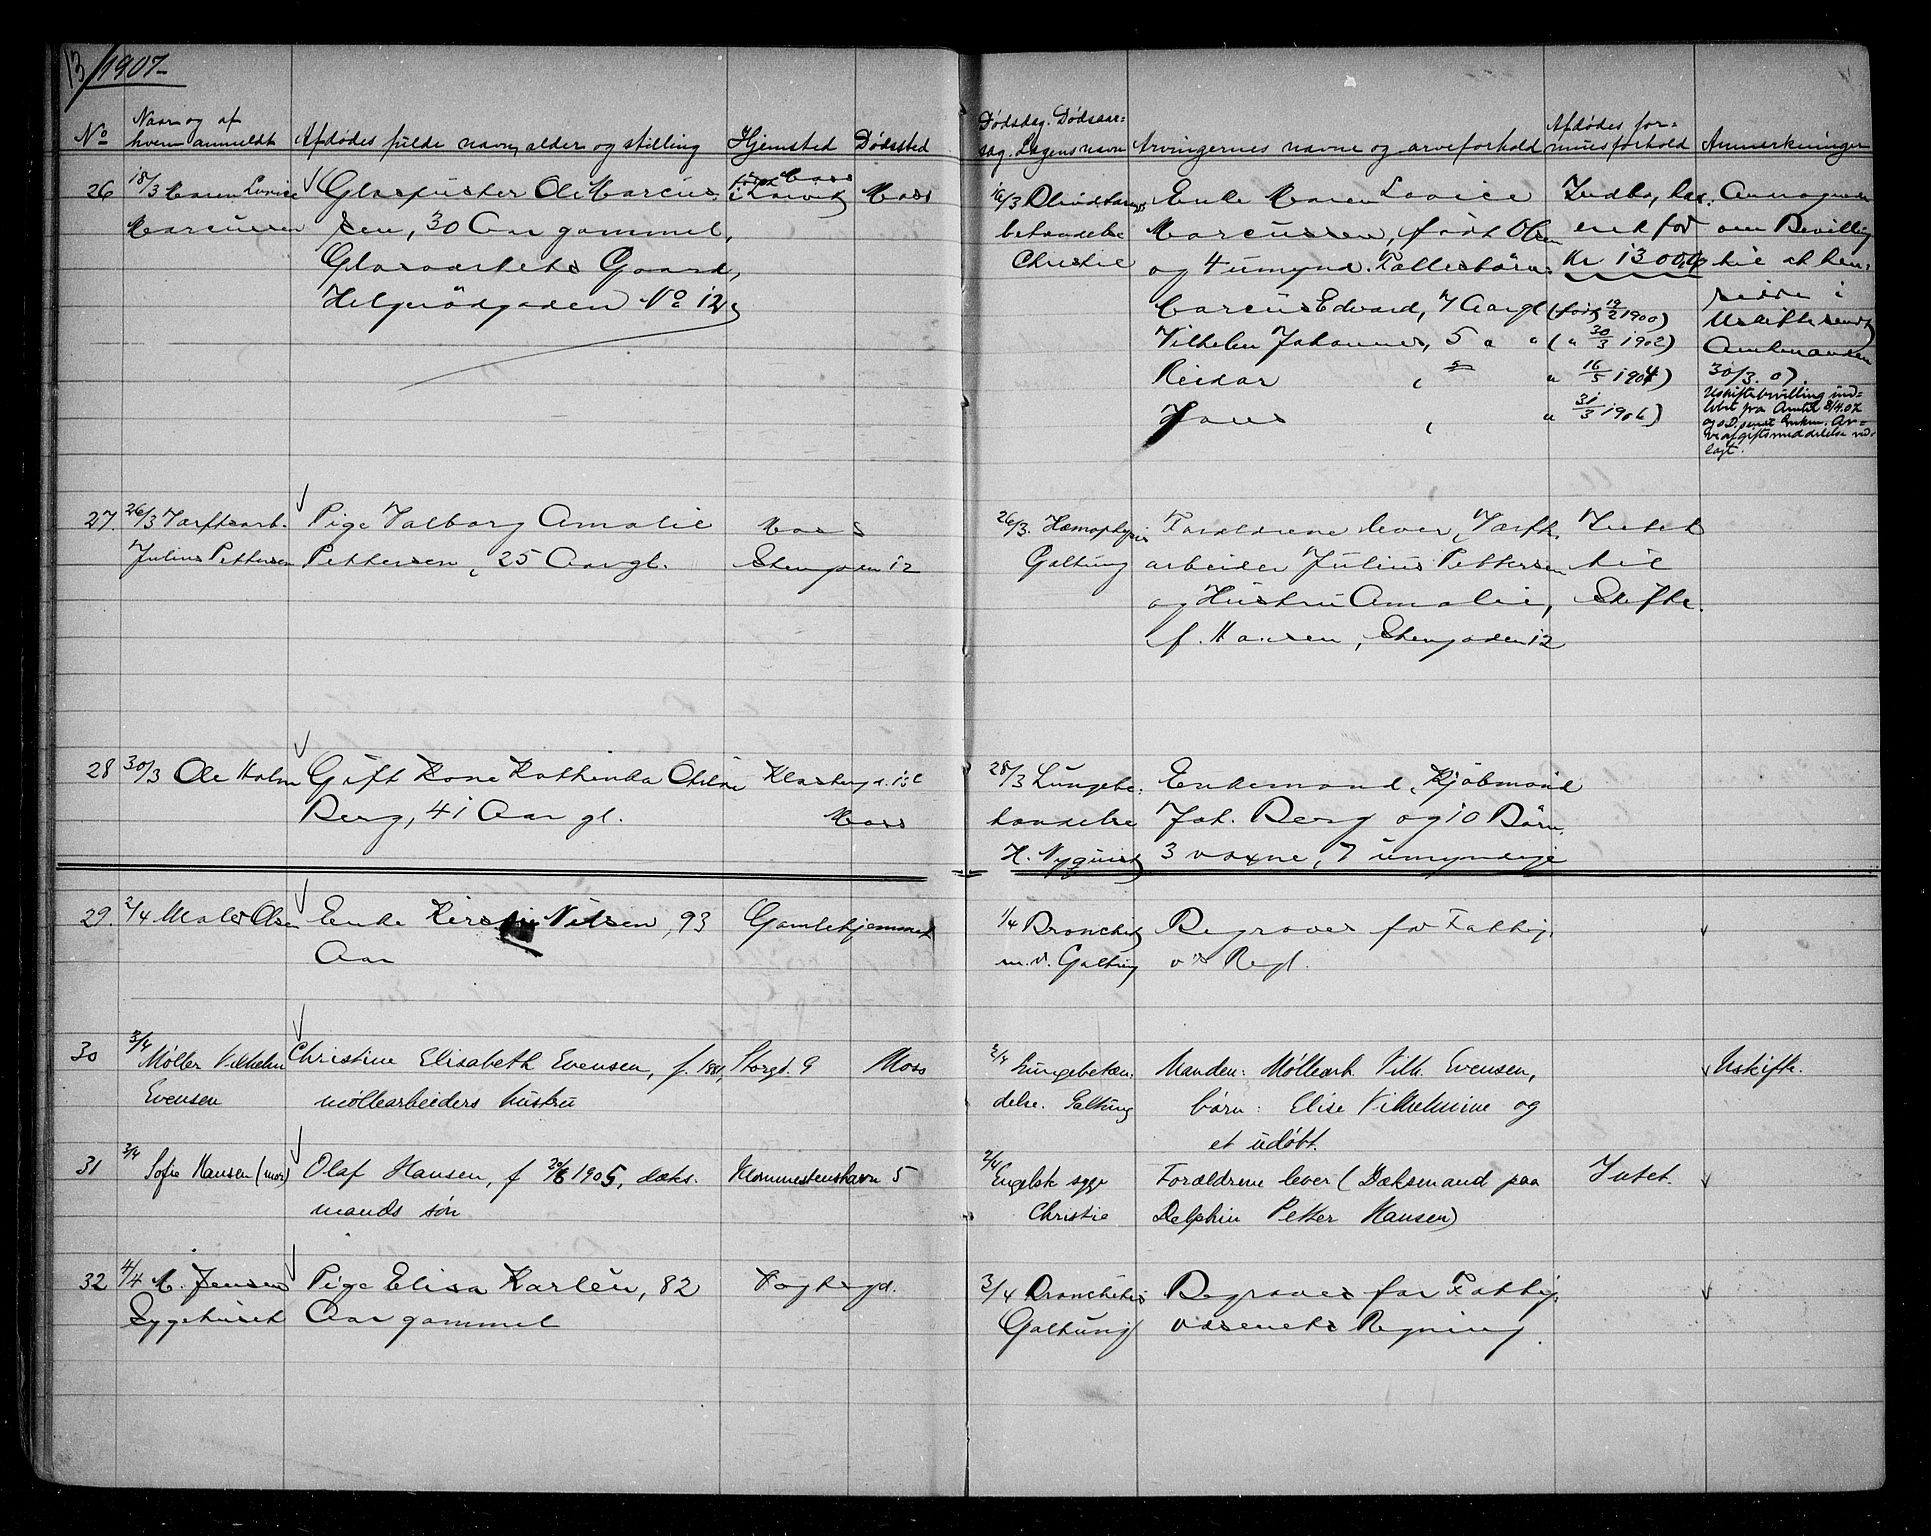 13/1907
No
Naar og af
hvem anmeldt
Afdødes fulde navn, alder og stilling
Hjemsted
Dødssted
Dødsdag. Dødsaar=
sag. Lægens navn
Arvingernes navne og arveforhold
Afdødes for=
muesforhold
Anmerkninger
26
18/3 Maren Lovise
Marcussen
Glaspuster Ole Marcus
sen, 30 Aar gammel,
Glasværkets Gaard,
Helgerødgaden No 12
Moss
i Larvik
Moss
16/3 Blindtarms
betændelse
Christie
Enke Maren Lovise
Marcussen, født Olsen
og 4 umynd. Fællesbørn:
Marcus Edvard, 7 Aar gl (født 19/2 1900)
Vilhelm Johannes, 5 " " (" 30/3 1902)
Reidar " 16/5 1904)
Hans " 31/3 1906)
Indbo, has.
enk for
Kr 1300,00
Ansøgende
om Bevilling
til at hen
sidde i
Uskifte sendt
Amtmanden
30/3. 07.
Uskiftebevilling ind=
løbet fra Amtet 8/4.07
og s.D. sendt Enken. Ar=
veafgiftsmeddelelse ved=
lagt.
27.
26/3 Værftsarb.
Julius Pettersen
Pige Valborg Amalie
Pettersen, 25 Aar gl.
Moss
Stengaden 12
26/3. Hæmophysis
Galtung
Forældrene lever, Værfts
arbeider Julius Pettersen
og Hustru Amalie,
f. Hansen, Stengaden 12
Intet
til
Skifte.
28
30/3 Ole Holm
Gift Kone Kathinka Otilie
Berg, 41 Aar gl.
Moss
28/3 Lungebe.
tændelse
H. Nyquist
Enkemand, Kjøbmand
Joh. Berg og 10 Børn,
3 voxne, 7 umyndige
29.
2/4 Maler Olsen
Enke Kirstie Nilsen, 93
Aar
Gamlehjemmet
1/4 Bronchit
m.v. Galtung
Begraves for Fattig.
v's Regl.
30
3/4
Møller Vilhelm
Evensen
Christine Elisabeth Evensen, f. 1881,
møllearbeiders hustru
Storgd. 9
Moss
2/4
Lungebetæn.
delse. Galtung
Manden: Møllearb. Vilh. Evensen,
børn: Elise Vilhelmine og
et udøbt.
Uskifte.
31
3/4
Sofie Hansen (mor)
Olaf Hansen, f 29/6 1905, dæks.
mands søn
Klommestenshavn 5
2/4
Engelsk syge
Christie
Forældrene lever (Dæksmand paa
Delphin Petter Hansen)
Intet.
32
4/4 C. Jensen
Sygehuset
Pige Elisa Karlén, 82
Aar gammel
Vogtsgd.
3/4 Bronchitis
Galtung
Begraves for Fattig.
væsenets Regning.